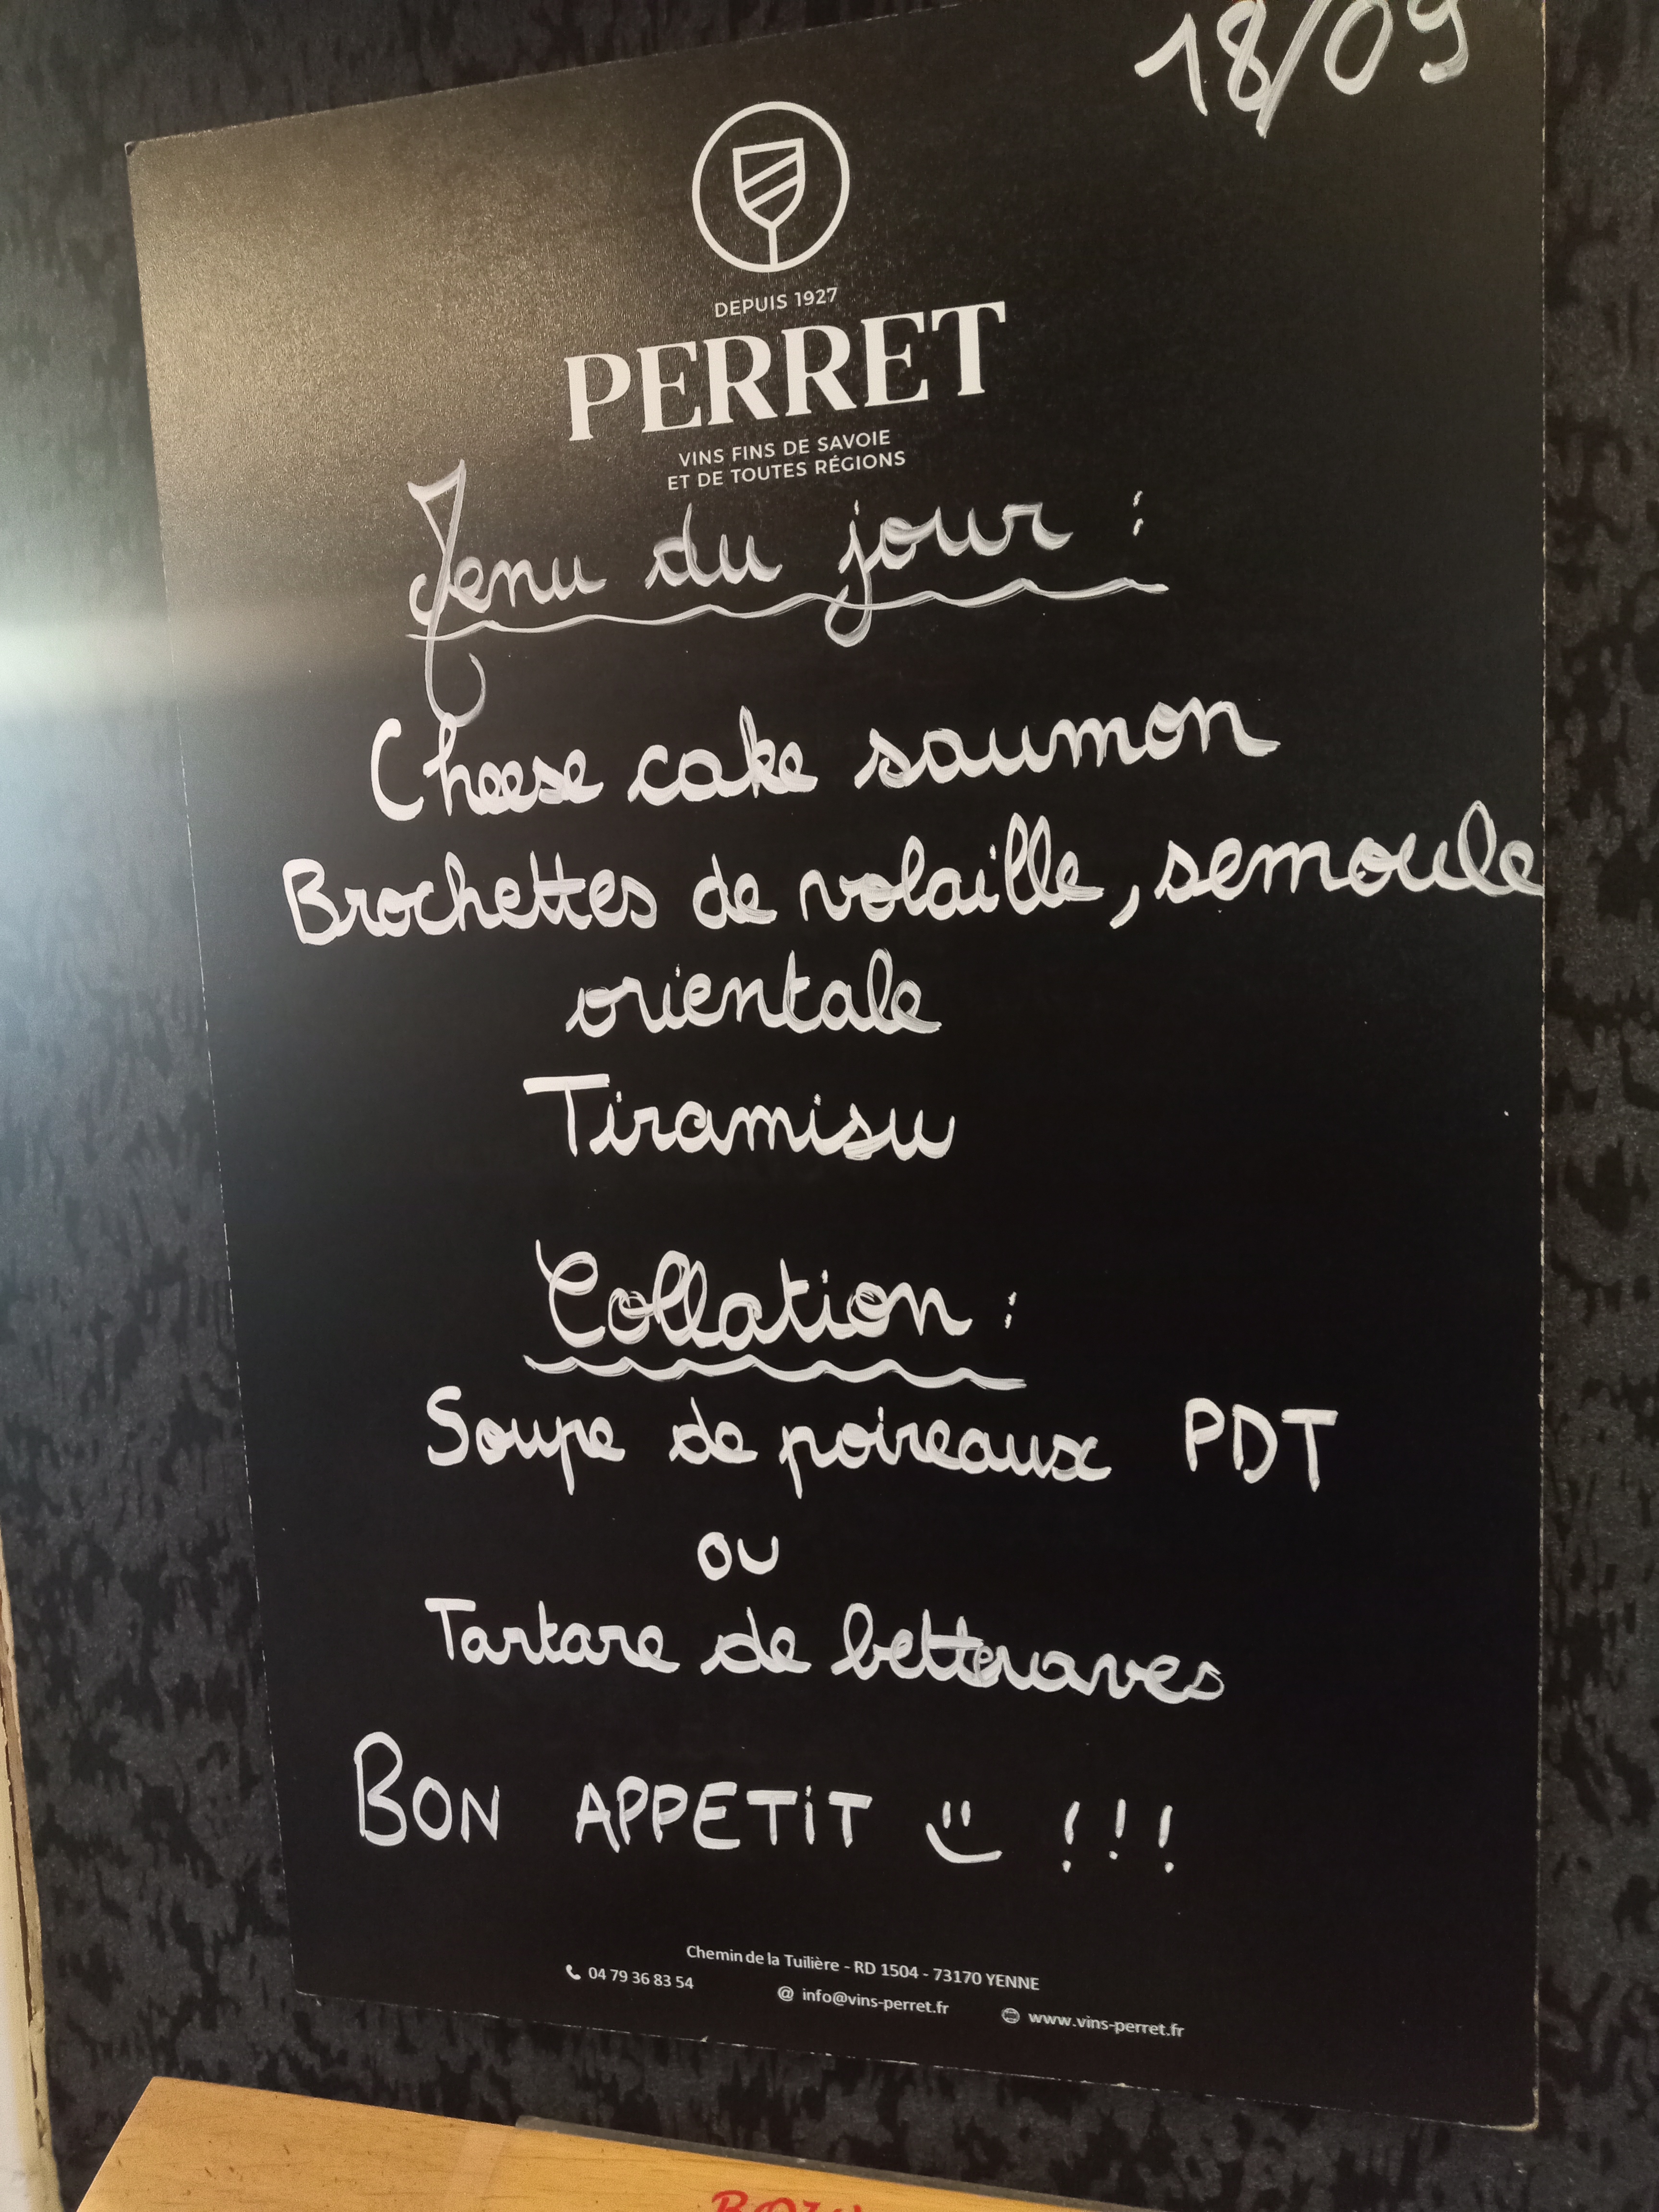 18/09
DEPUIS 1927
PERRET
VINS FINS DE SAVOIE
ET DE TOUTES RÉGIONS
Menu du jour :
Cheese cake saumon
Brochettes de volaille, semoule
orientale
Tiramisu
Collation :
Soupe de poireaux PDT
ou
Tartare de betteraves
BON APPETiT !!!
Chemin de la Tuilière - RD 1504 - 73170 YENNE
04 79 36 83 54 @ info@vins-perret.fr www.vins-perret.fr